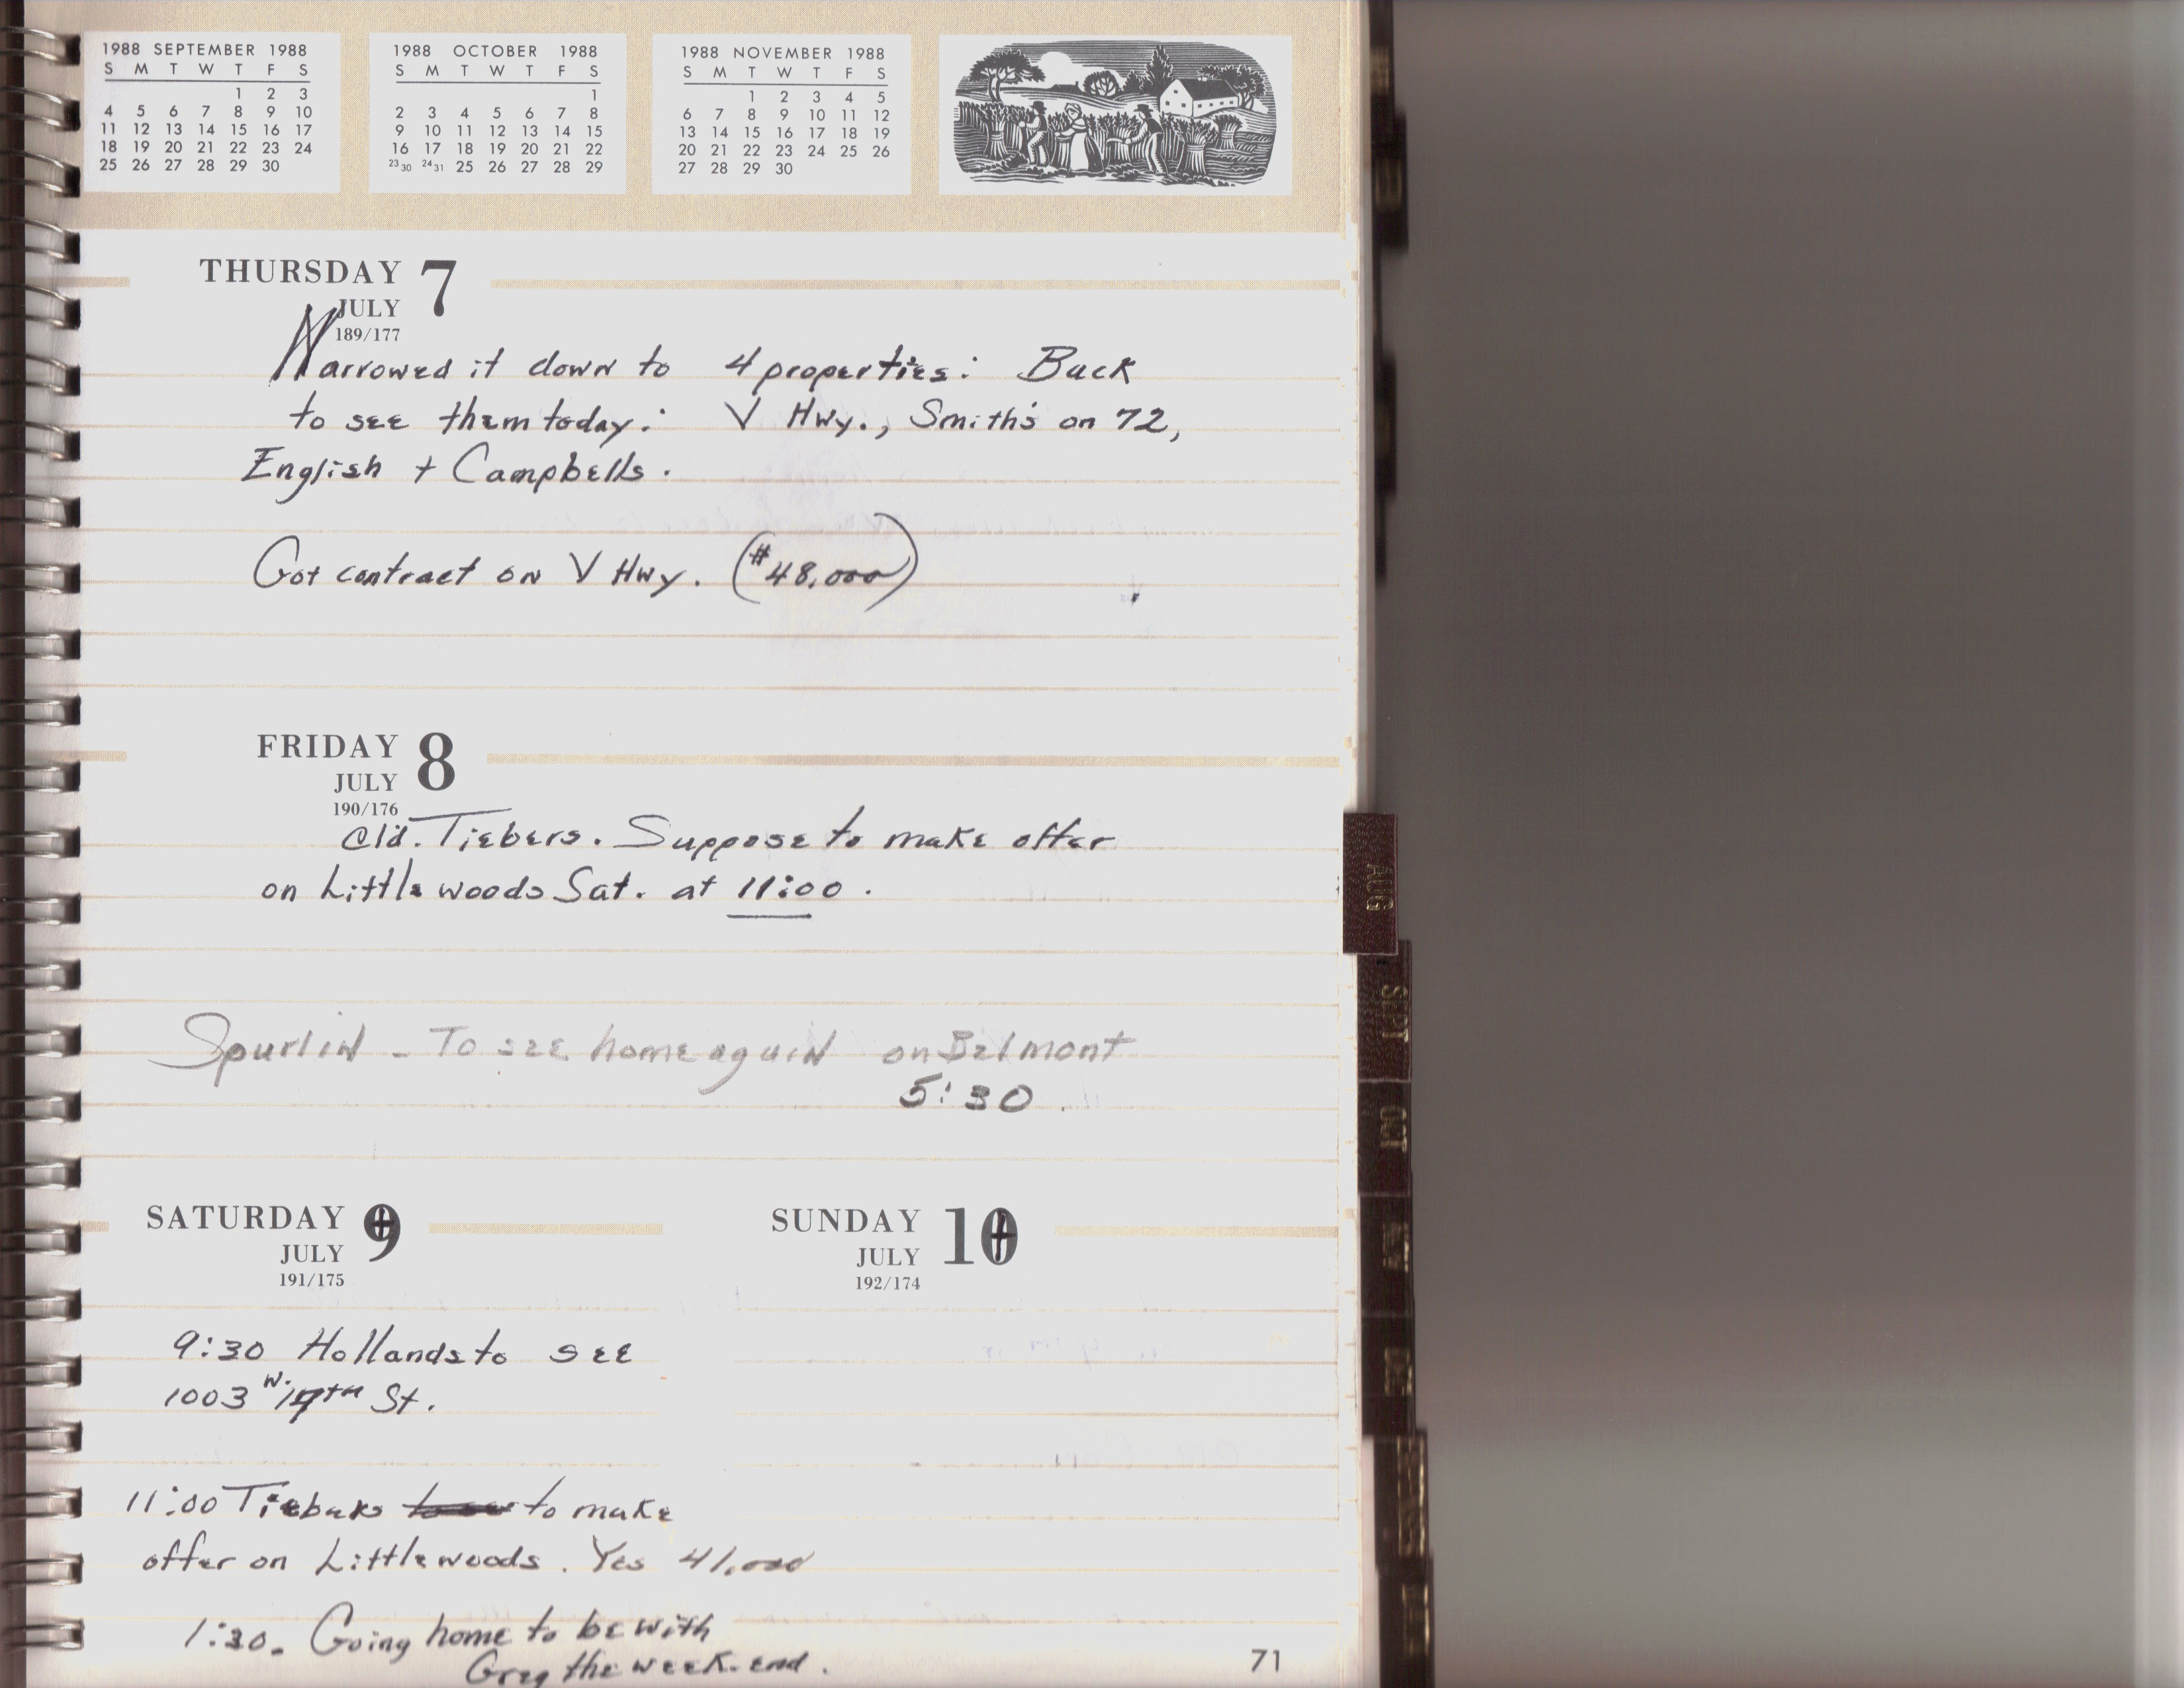 1988 SEPTEMBER 1988
S M T W T F S
1 2 3
4 5 6 7 8 9 10
11 12 13 14 15 16 17
18 19 20 21 22 23 24
25 26 27 28 29 30
1988 OCTOBER 1988
S M T W T F S
1
2 3 4 5 6 7 8
9 10 11 12 13 14 15
16 17 18 19 20 21 22
23 30 24 31 25 26 27 28 29
1988 NOVEMBER 1988
S M T W T F S
1 2 3 4 5
6 7 8 9 10 11 12
13 14 15 16 17 18 19
20 21 22 23 24 25 26
27 28 29 30
THURSDAY 7
JULY
189/177
Narrowed it down to 4 properties: Back
to see them today: V Hwy., Smith's on 72,
English + Campbells.
Got contract on V Hwy. (#48,000)
FRIDAY 8
JULY
190/176
Cld. Tiebers. Suppose to make offer
on Littlewoods Sat. at 11:00.
Spurlin - To see home again on Belmont
5:30.
SATURDAY 9
JULY
191/175
9:30 Hollands to see
1003 W. St.
11:00 Tiebers to make
offer on Littlewoods. Yes 41,000
1:30. Going home to be with
Greg the week-end.
SUNDAY 10
JULY
192/174
71
AUG
SEPT
OCT